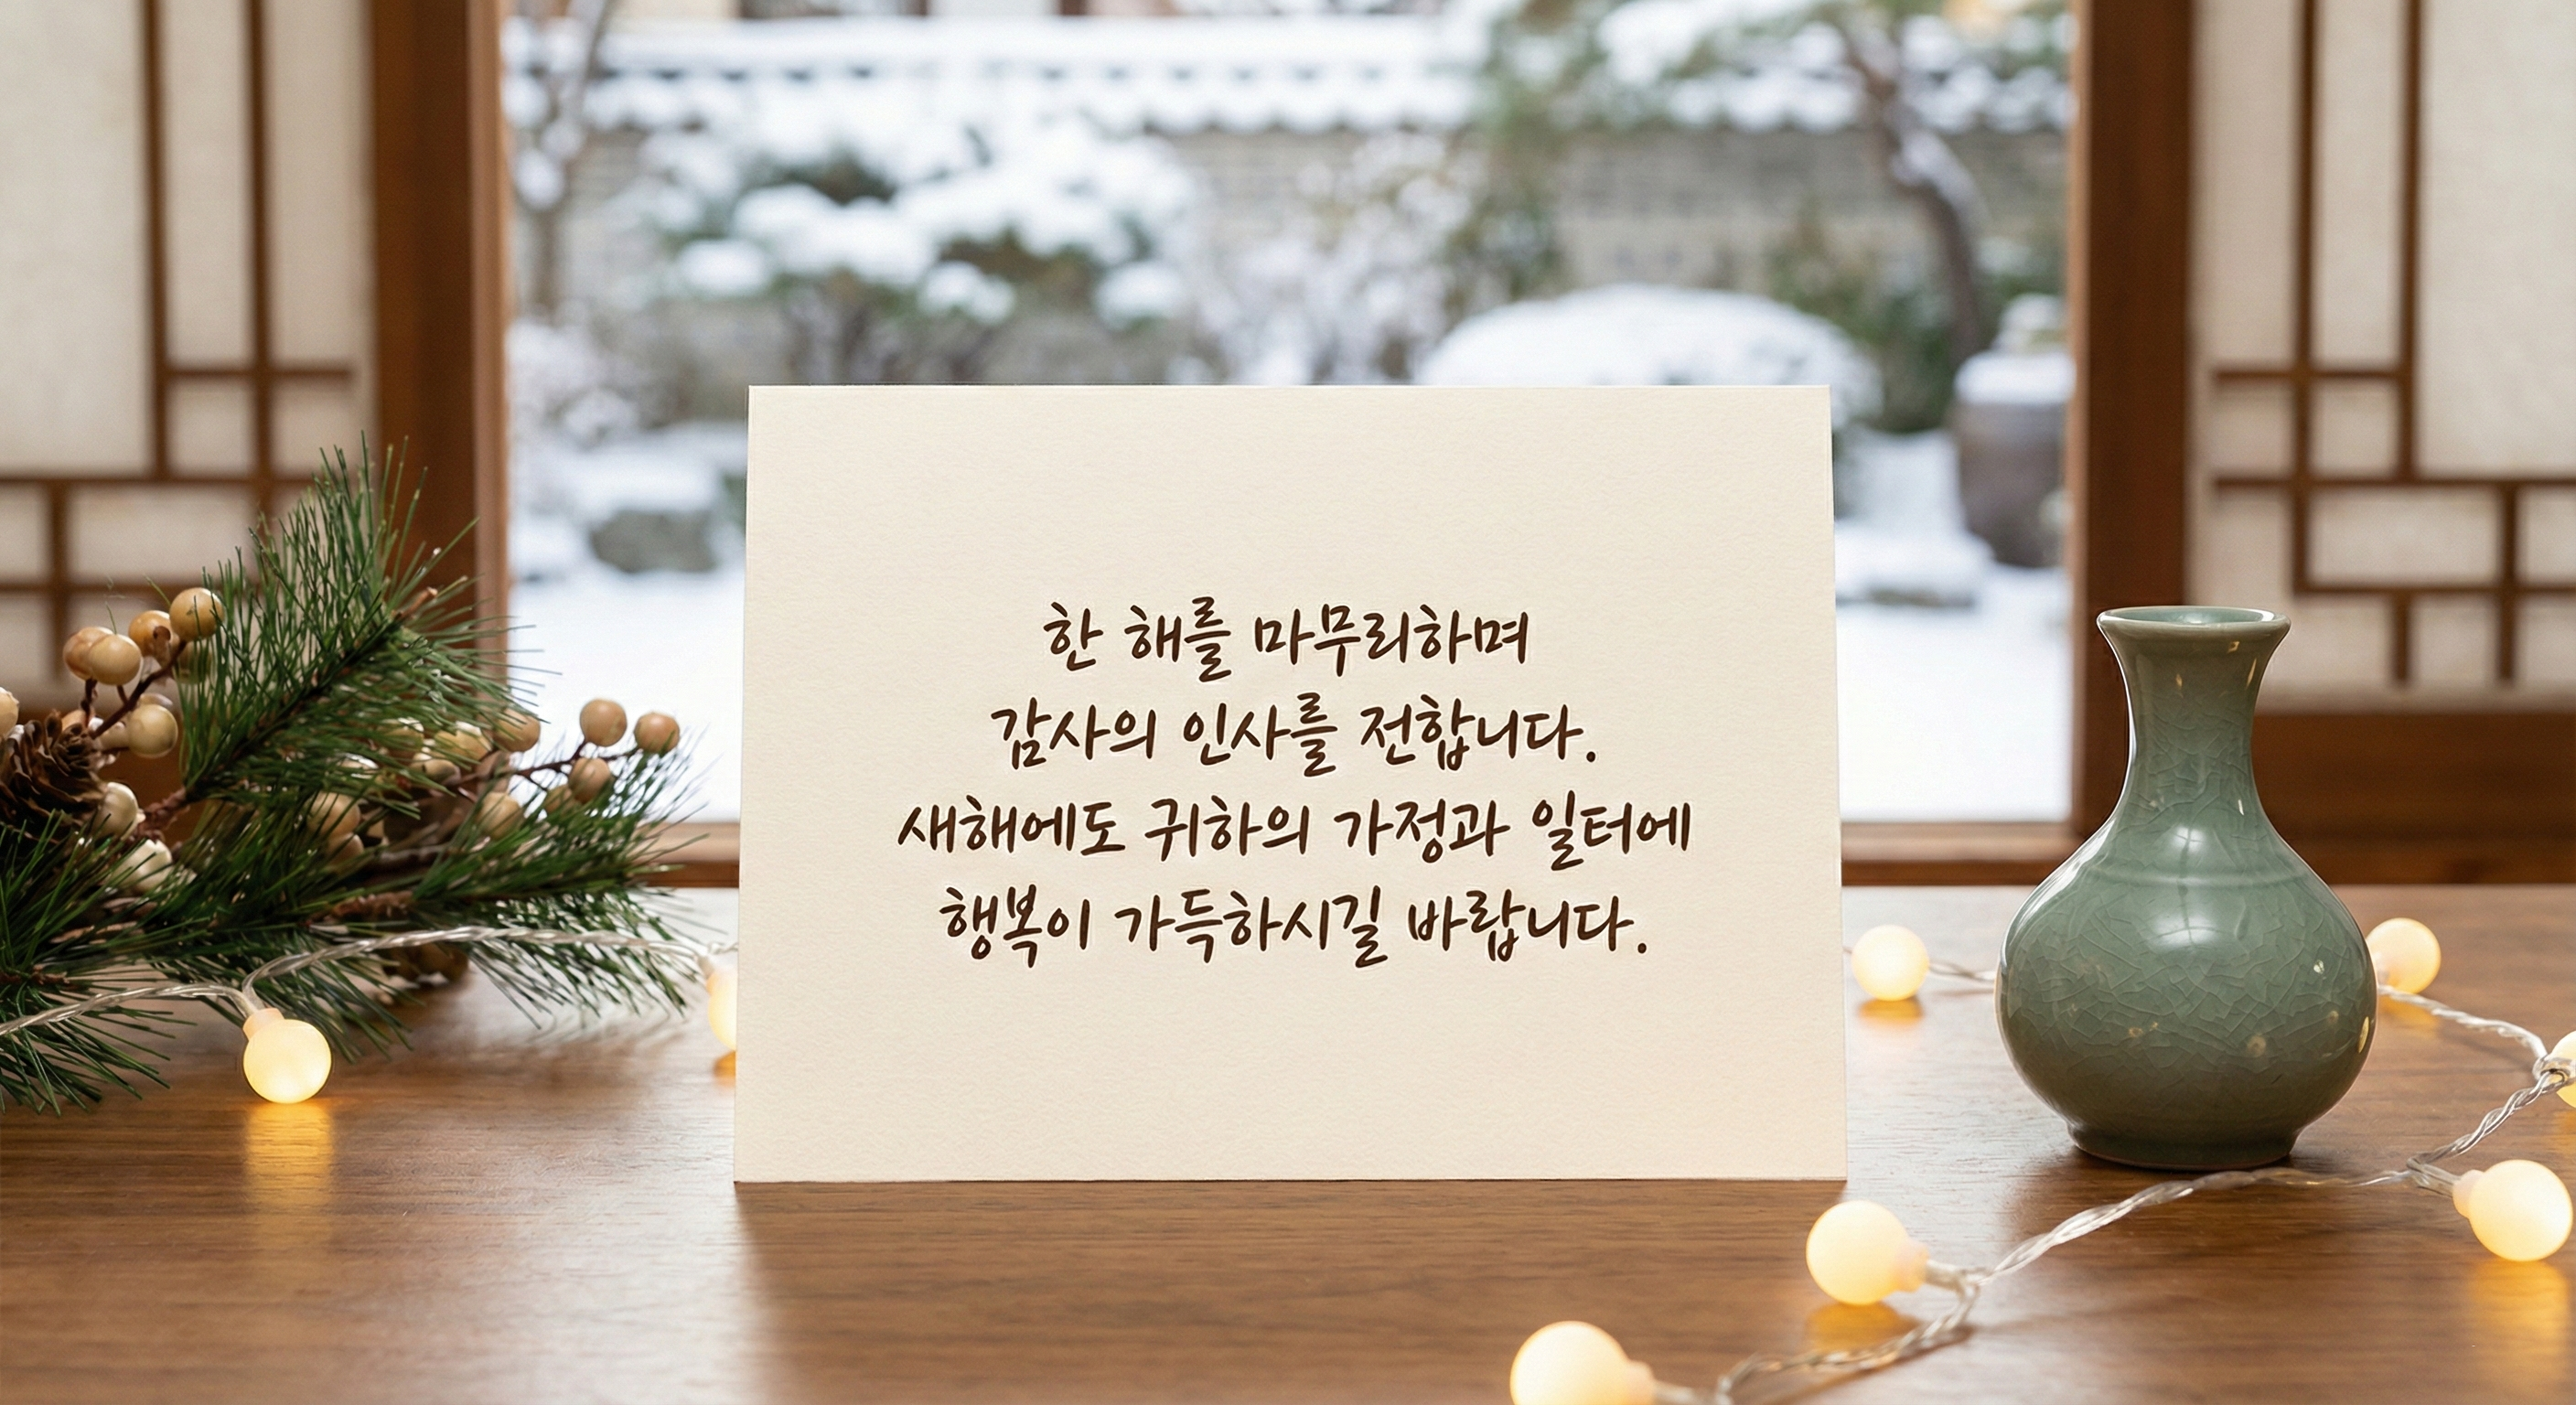 한 해를 마무리하며
감사의 인사를 전합니다.
새해에도 귀하의 가정과 일터에
행복이 가득하시길 바랍니다.